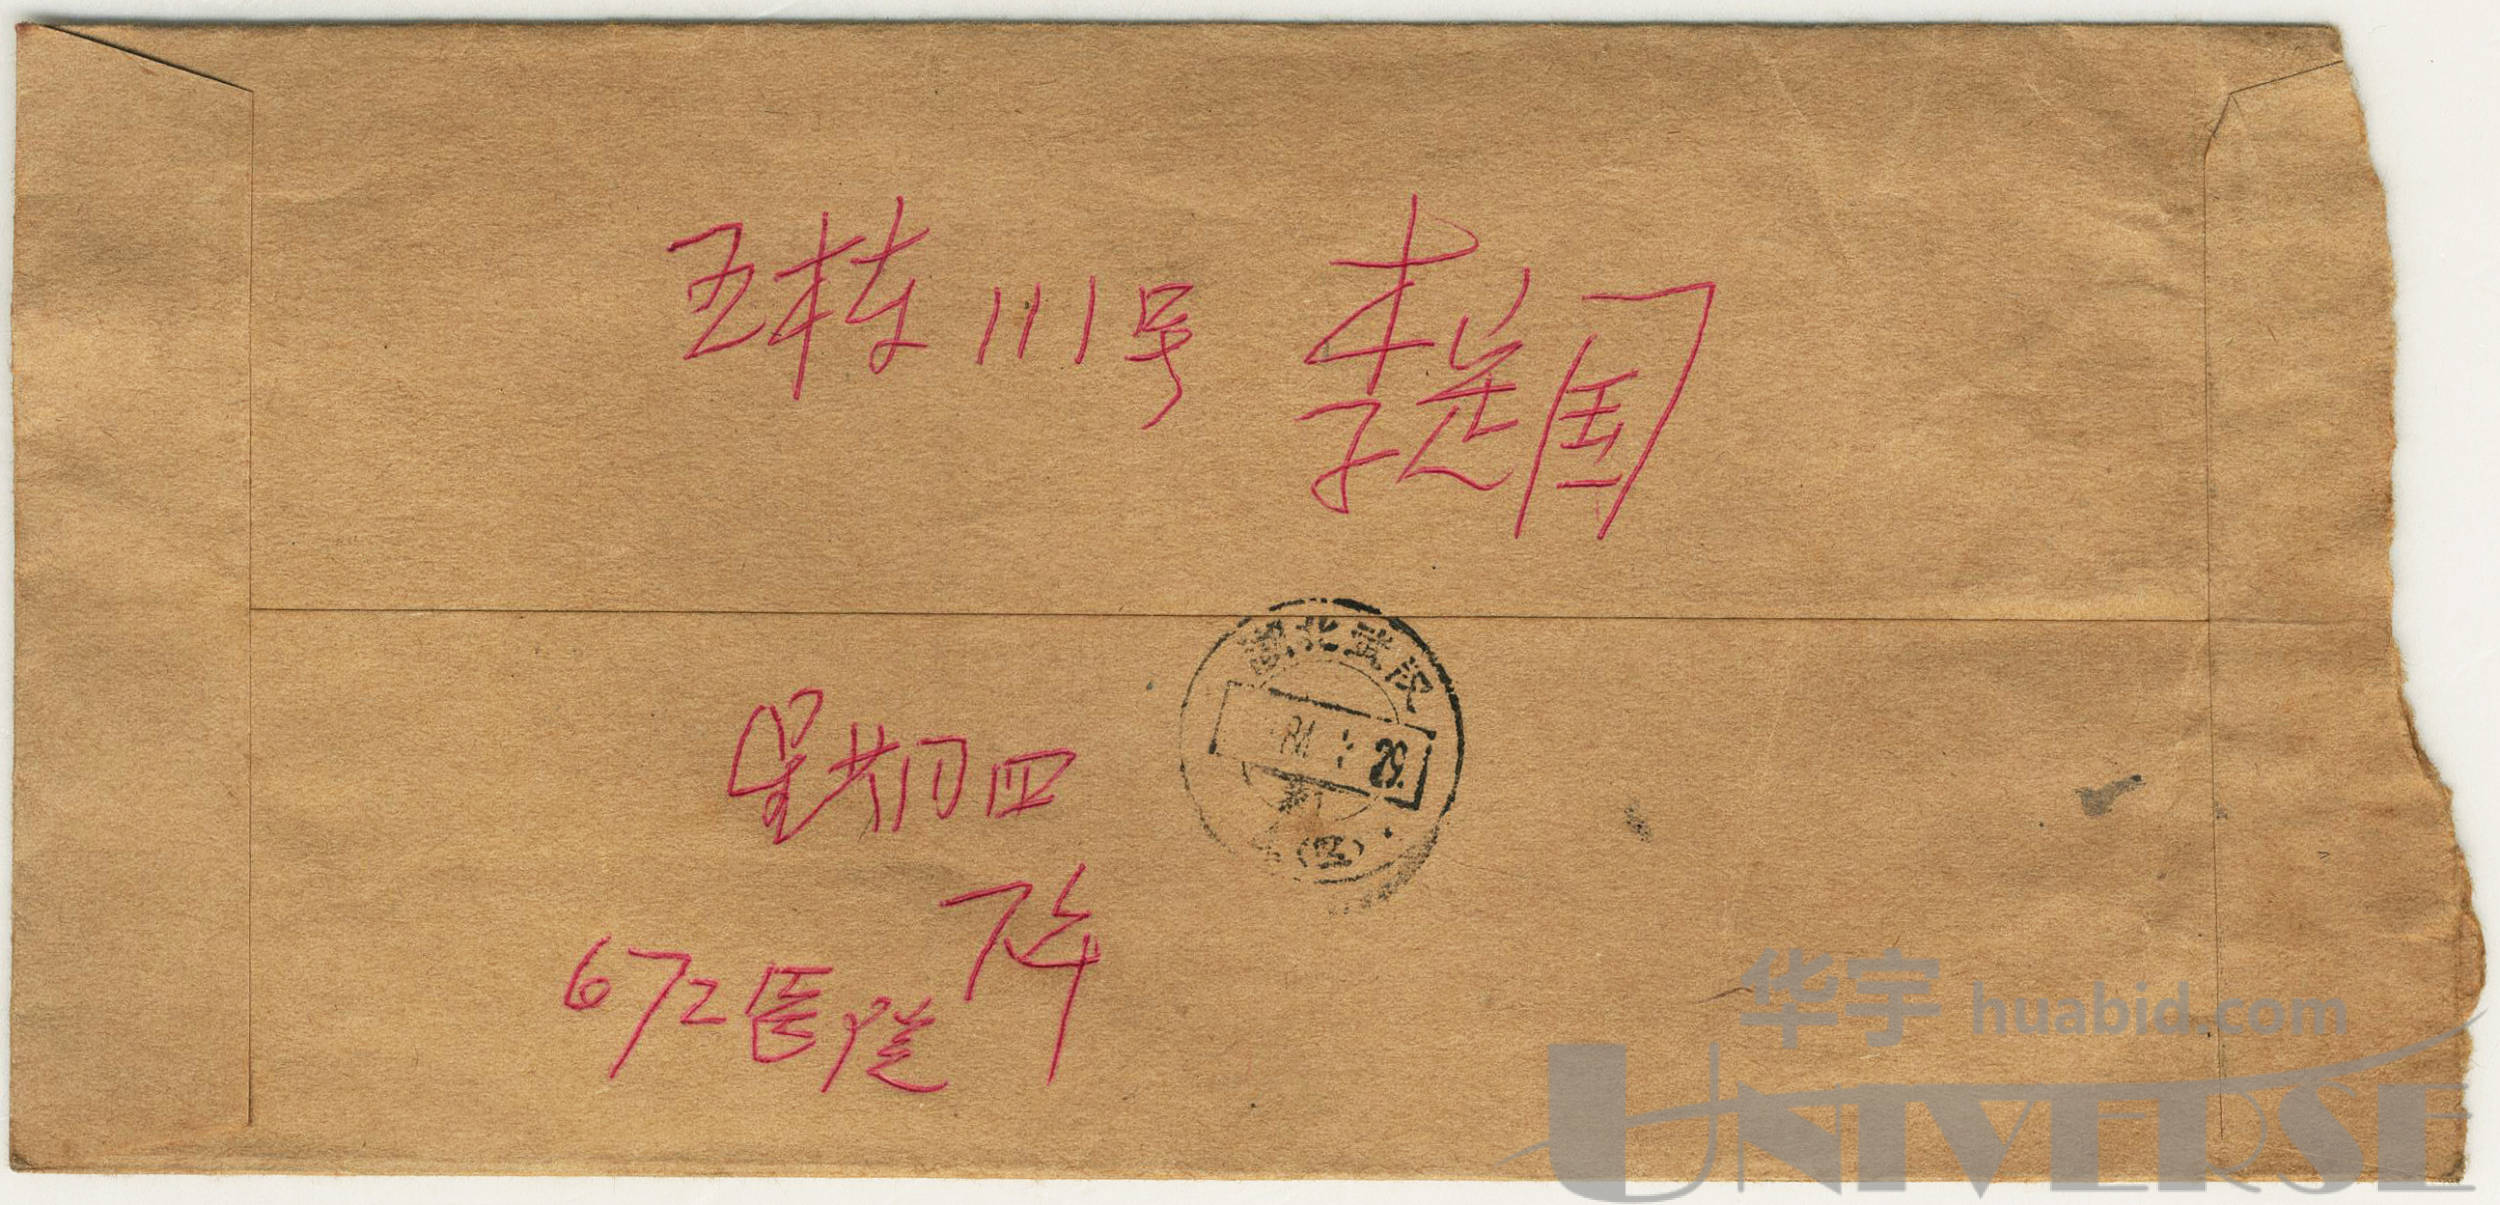 五栋111号 李定国
湖北武汉
81. 29.
(区)
星期四
下午
672医院
华宇 huabid.com
UNIVERSE